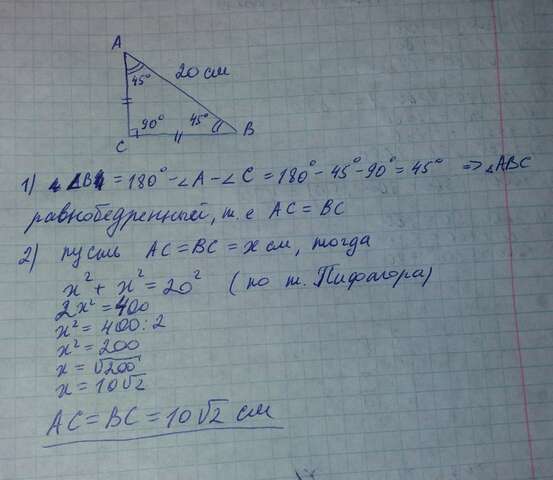 A
45°
20 см
90°
45°
C
B
1) ∠B = 180° - ∠A - ∠C = 180° - 45° - 90° = 45° => △ABC
равнобедренный, т.е AC = BC
2) пусть AC = BC = x см, тогда
x² + x² = 20² (по т. Пифагора)
2x² = 400
x² = 400 : 2
x² = 200
x = √200
x = 10√2
AC = BC = 10√2 см